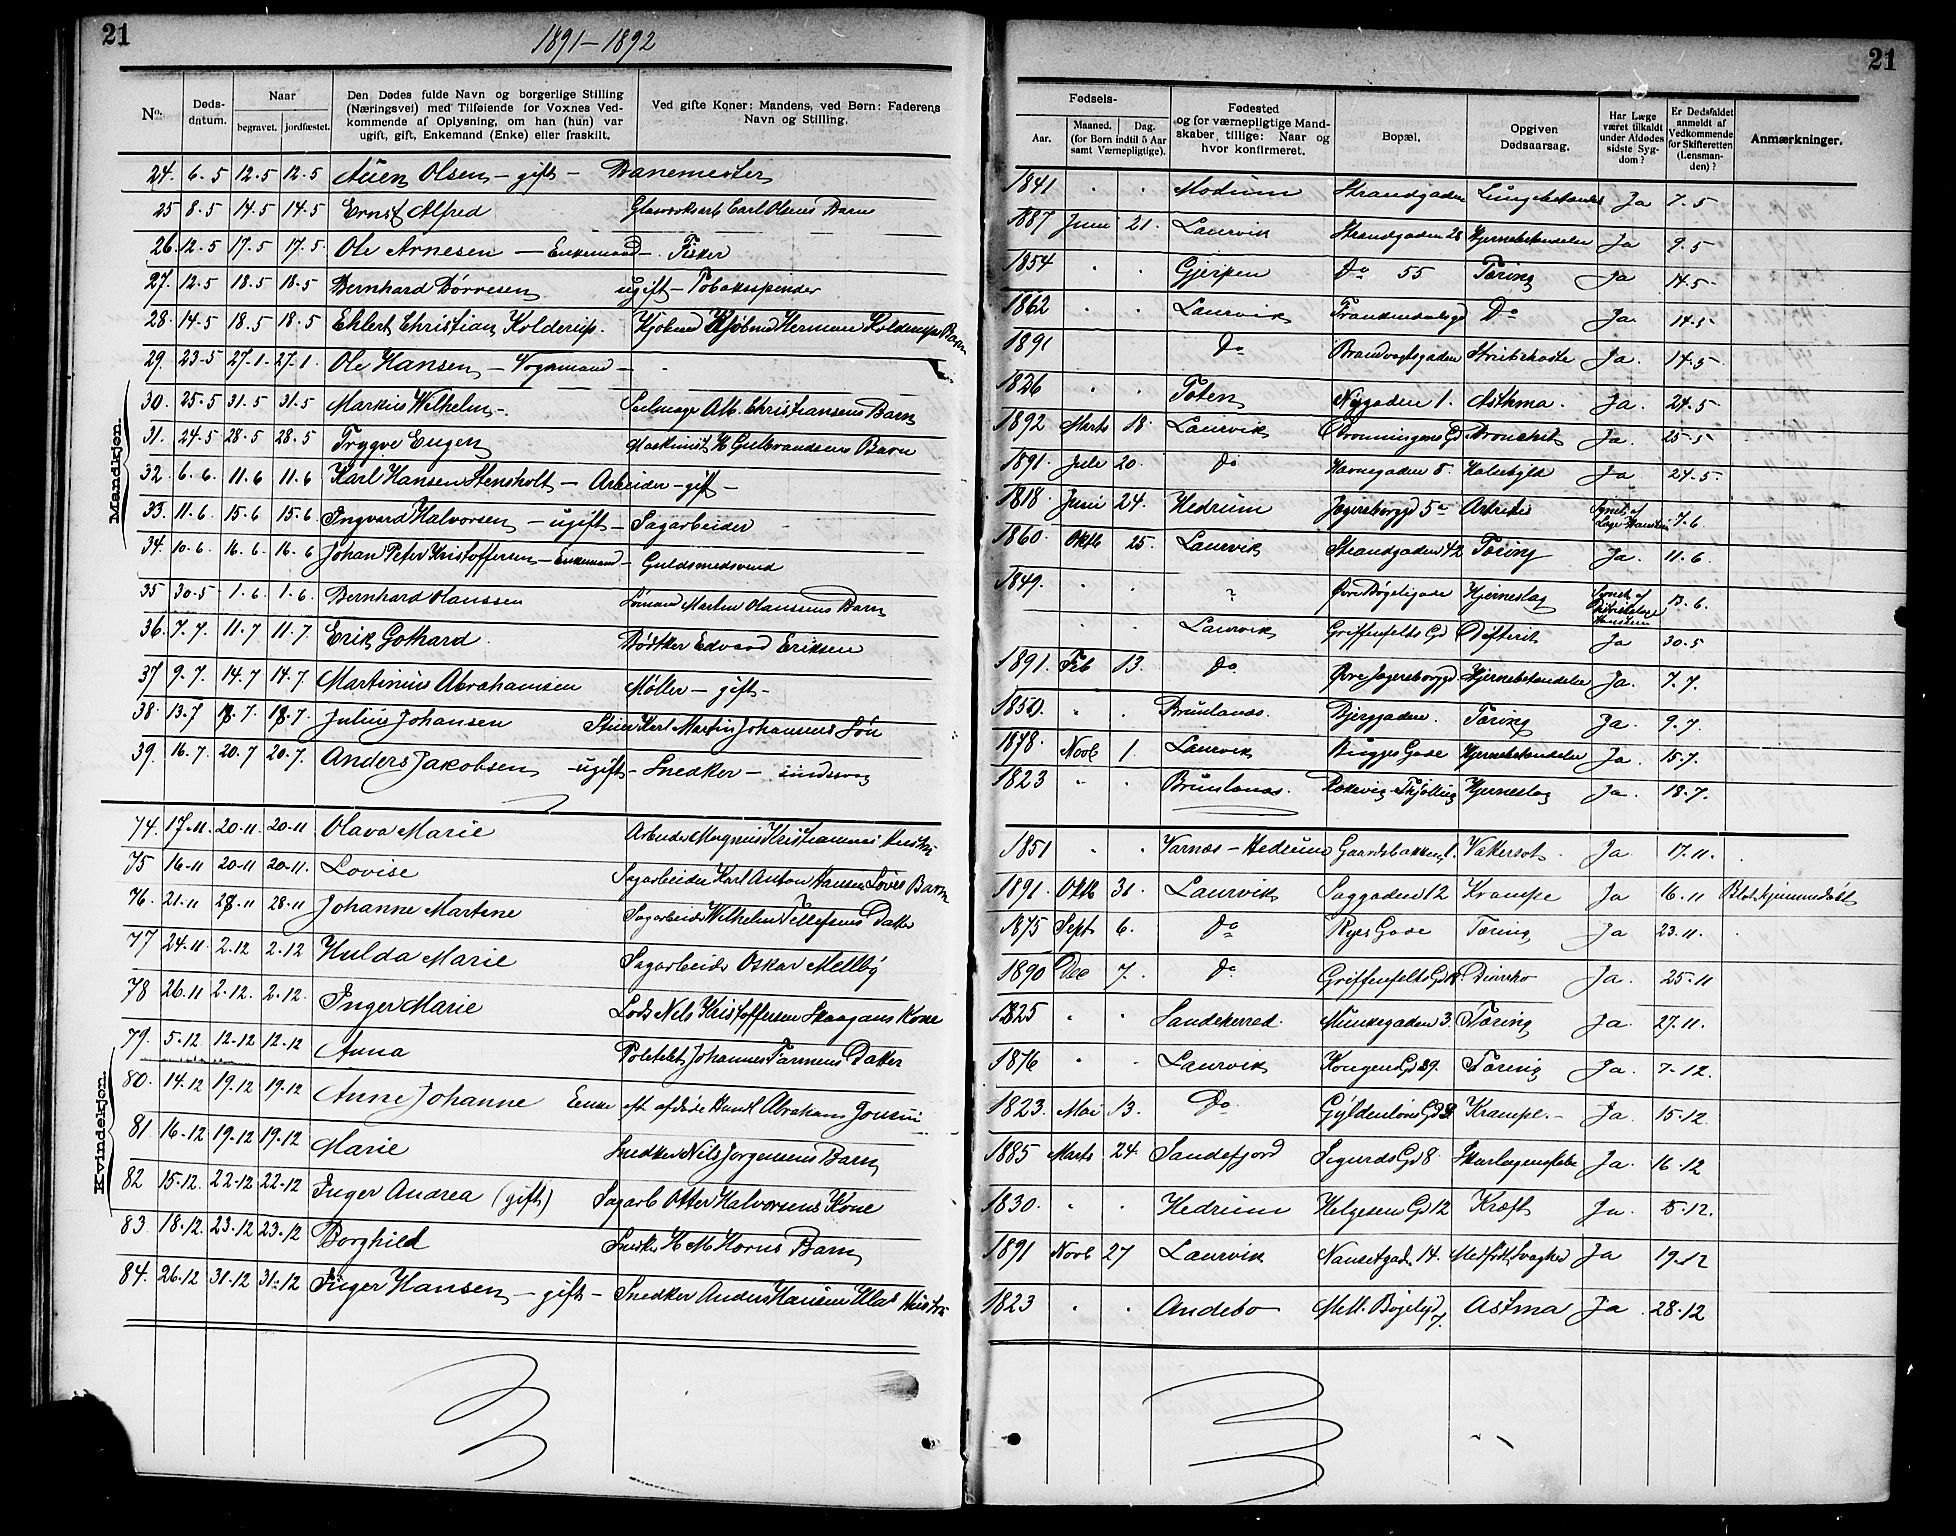 21
1891–1892
No.
Døds-datum.
Naar
begravet.
jordfæstet.
Den Dødes fulde Navn og borgerlige Stilling
(Næringsvei) med Tilføiende for Voxnes Ved-
kommende af Oplysning, om han (hun) var
ugift, gift, Enkemand (Enke) eller fraskilt.
Ved gifte Koner: Mandens, ved Børn: Faderens
Navn og Stilling.
Mandkjøn.
24. 6.5 12.5 12.5 Olsen – gift – Banemester
25 8.5 14.5 14.5 Ernst Alfred Glasværksarb Carl Olsens Barn
26. 12.5 17.5 17.5 Ole Arnesen – Enkemand – Fisker
27. 12.5 18.5 18.5 Bernhard Børresen ugift – Tobaksspinder
28. 14.5 18.5 18.5 Ehlert Christian Kolderup. Kjøbmd Kjøbmd Herman Kolderups Barn
29. 23.5 27.1. 27.1 Ole Hansen – Vognmand –
30. 25.5 31.5 31.5 Markus Wilhelm – Seilmager Alb. Christiansens Barn
31. 24.5 28.5 28.5 Trygve Eugen Maskinist K Gulbrandsens Barn
32. 6.6. 11.6 11.6 Karl Hansen Stensholt – Arbeider – gift –
33. 11.6 15.6 15.6 Ingvard Halvorsen – ugift – Sagarbeider
34. 10.6 16.6 16.6 Johan Peter Kristoffersen – Enkemand – Guldsmedsvend
35 30.5 1.6. 1.6. Bernhard Olanssen Sømand Martin Olanssens Barn
36. 7.7. 11.7 11.7 Erik Gothard. Bødtker Edvard Eriksen
37 9.7. 14.7 14.7 Martinius Abrahamsen Møller – gift –
38. 13.7 18.7. 18.7. Julius Johansen Karl Martin Johansens Søn
39. 16.7. 20.7 20.7. Anders Jakobsen – ugift – Snedker – sindssvag
Kvindekjøn.
74. 17.11. 20.11. 20.11 Olava Marie Arbeider Magnus Kristiansens Hustru
75 16.11 20.11 20.11. Lovise Sagarbeider Karl Anton Hansen Løves Barn
76. 21.11 28.11 28.11 Johanne Martine Sagarbeider Wilhelm Tellefsens Datter
77 24.11 2.12 2.12 Hulda Marie Sagarbeider Oskar Mellby
78 26.11 2.12. 2.12. Inger Marie Lods Nils Kristoffersen Skaagans Kone
79. 5.12 12.12 12.12 Anna Johannes Farmens Datter
80. 14.12 19.12 19.12 Anne Johanne Enke eft afdøde Abraham
81. 16.12 19.12 19.12 Marie Snedker Nils Jørgensens Barn
82 15.12. 22.12 22.12 Inger Andrea (gift) Sagarb Otter Halvorsens Kone
83. 18.12. 23.12 23.12 Borghild Snedker K M Korns Barn
84. 26.12 31.12 31.12 Inger Hansen – gift – Snedker Anders Hansen Hustru
21
Fødsels-
Aar.
Maaned.
Dag.
(for Børn indtil 5 Aar
samt Værnepligtige).
Fødested
og for værnepligtige Mand-
skaber, tillige: Naar og
hvor konfirmeret.
Bopæl.
Opgiven
Dødsaarsag.
Har Læge
været tilkaldt
under Afdødes
sidste Syg-
dom?
Er Dødsfaldet
anmeldt af
Vedkommende
for Skifteretten
(Lensman-
den)?
Anmærkninger.
1841 " " Modum Strandgaden Lungebetændelse Ja 7.5
1887 Juni 21. Laurvik Strandgaden 28 Hjernebetændelse Ja 9.5
1854 " " Gjerpen Do 55 Tæring Ja 14.5
1862 " " Laurvik Trandendalsgd Do Ja. 14.5
1891 Do Brandvagtsgaden Strubehoste Ja. 14.5
1826 " " Toten Nygaden 1. Asthma. Ja. 24.5
1892 Marts 18. Laurvik Dronningens Gd Bronchit Ja 25.5
1891. Juli 20. Do Havnegaden 8. Ja 24.5
1818 Juni 24. Hedrum Jegersborggd 5 7.6
1860. Oktb 25. Laurvik Strandgaden 42 Tæring Ja. 11.6
1849. " " ? Øvre Bøgeligade Hjerneslag 13.6.
" " Laurvik Griffenfelts Gd Difterit Ja 30.5
1891. Feb 13. Do Øvre Jegersborggd Hjernebetændelse Ja. 7.7.
1850. " " Brunlanæs. Bjerggaden. Tæring Ja. 9.7.
1878. Novb 1. Laurvik Brygges Gade Hjernebetændelse Ja. 15.7.
1823 " " Brunlanæs. Tjølling Hjerneslag Ja. 18.7.
1851 " " Varnæs – Hedrum Gaardsbakken 1. Vattersot. Ja 17.11.
1891. Oktb 31. Laurvik Saggaden 12 Krampe Ja 16.11 Blot hjemmedøbt
1875 Sept 6. Do Ryes Gade Tæring Ja 23.11.
1890 Dec 7. Do Griffenfelts Gd Ja. 25.11
1825 " " Sandeherred. Munkegaden 3. Tæring Ja. 27.11.
1876 " " Laurvik Kongens Gd 29. Tæring Ja. 7.12.
1823. Mai 13. Do. Gyldenløves Gd Krampe. – Ja. 15.12.
1885 Marts 24. Sandefjord Sigurds Gd 8. Skarlagensfeber Ja. 16.12
1830. " " Hedrum Helgesens Gd 12 Kræft Ja. 5.12.
1891 Novb 27 Laurvik Nansetgade 14. Medfødt Svaghed Ja 19.12
1823 " " Andebo Mell. Bøgeligd 7. Astma Ja 28.12